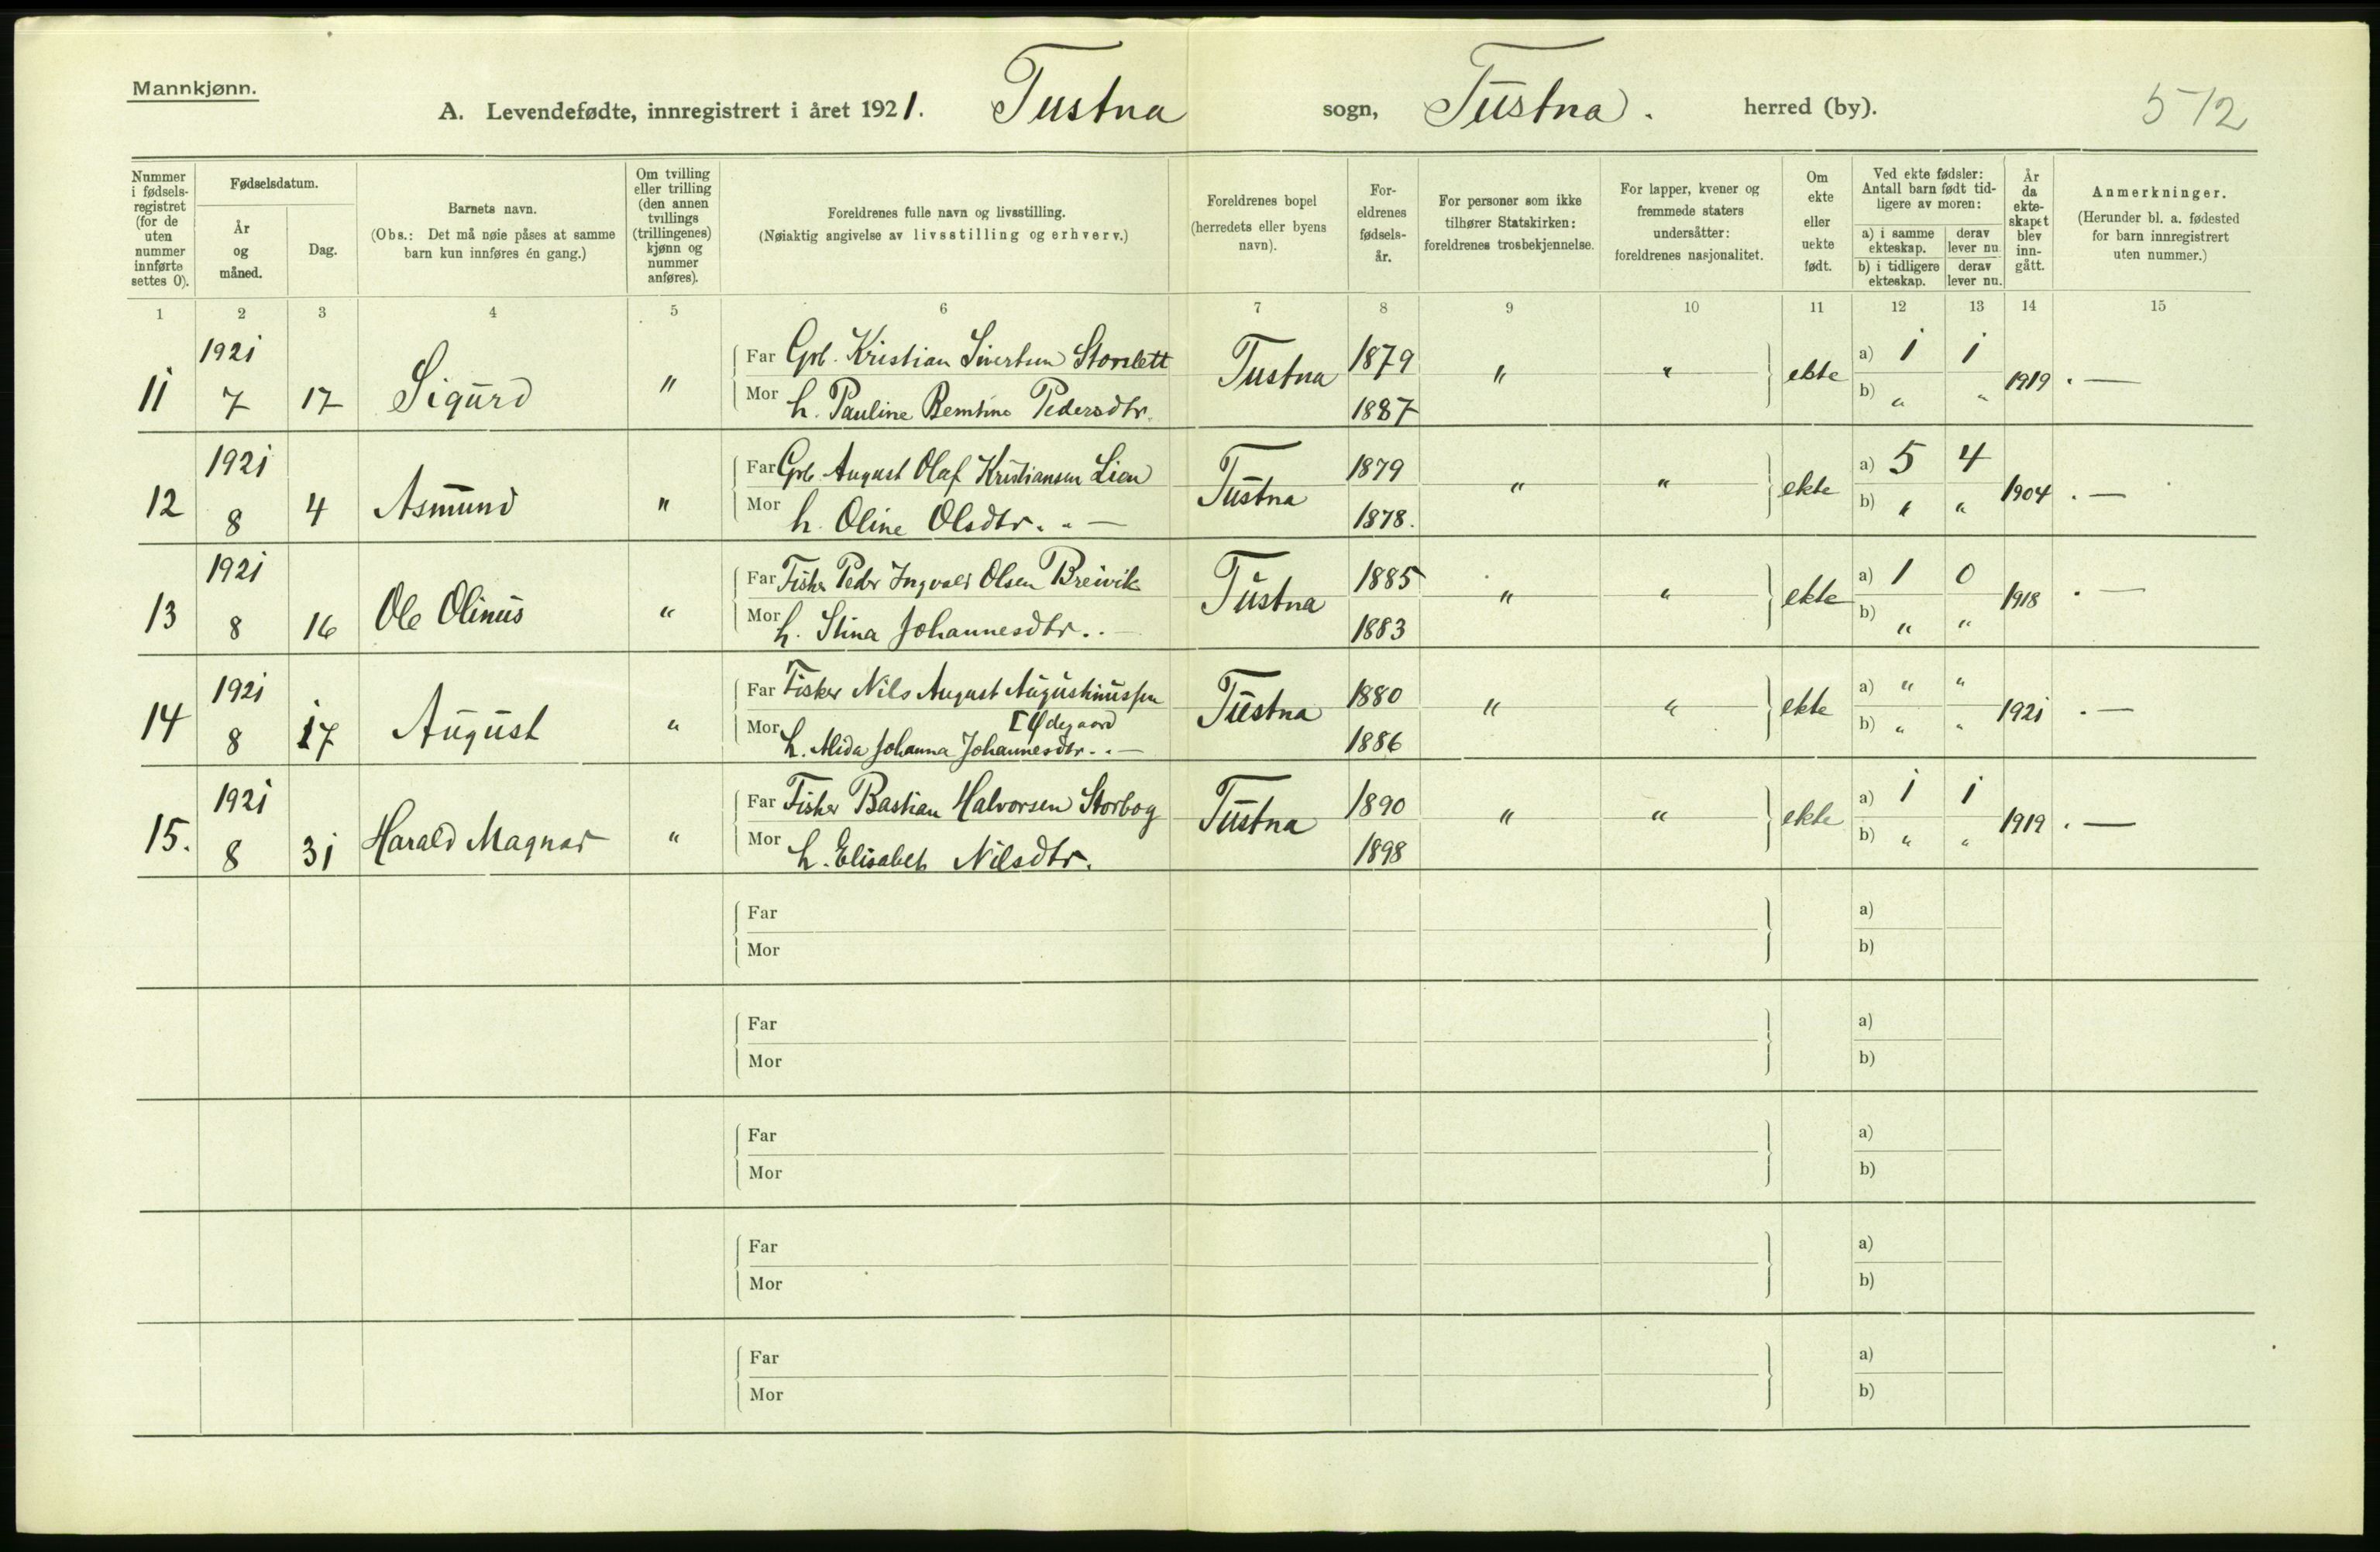 Mannkjønn.
A. Levendefødte, innregistrert i året 1921. Tustna sogn, Tustna. herred (by). 512
Nummer i fødsels-registret (for de uten nummer innførte settes 0).
Fødselsdatum.
År og måned.
Dag.
Barnets navn.
(Obs.: Det må nøie påses at samme barn kun innføres én gang.)
Om tvilling eller trilling (den annen tvillings (trillingenes) kjønn og nummer anføres).
Foreldrenes fulle navn og livsstilling.
(Nøiaktig angivelse av livsstilling og erhverv.)
Foreldrenes bopel (herredets eller byens navn).
For-eldrenes fødsels-år.
For personer som ikke tilhører Statskirken: foreldrenes trosbekjennelse.
For lapper, kvener og fremmede staters undersåtter: foreldrenes nasjonalitet.
Om ekte eller uekte født.
Ved ekte fødsler: Antall barn født tid-ligere av moren:
a) i samme ekteskap. derav lever nu.
b) i tidligere ekteskap. derav lever nu.
År da ekte-skapet blev inn-gått.
Anmerkninger.
(Herunder bl. a. fødested for barn innregistrert uten nummer.)
1 2 3 4 5 6 7 8 9 10 11 12 13 14 15
1921 Far Gbr. Kristian Sivertsen Storslett 1879 a) 1 1
11 7 17 Sigurd " Tustna " " ekte 1919 . —
Mor h. Pauline Berntine Pedersdtr. 1887 b) " "
1921 Far Gbr. August Olaf Kristiansen Lien 1879 a) 5 4
12 8 4 Asmund " Tustna " " ekte 1904 . —
Mor h. Oline Olsdtr. " — 1878. b) " "
1921 Far Fisker Peder Ingvald Olsen Breivik 1885 a) 1 0
13 8 16 Ole Olinus " Tustna " " ekte 1918 . —
Mor h. Stina Johannesdtr. . — 1883 b) " "
1921 Far Fisker Nils August Augustinussen 1880 a) " "
[Ødegaard
14 8 17 August " Tustna " " ekte 1921 . —
Mor h. Alida Johanna Johannesdtr. . — 1886 b) " "
1921 Far Fisker Bastian Halvorsen Storbog 1890 a) 1 1
15. 8 31 Harald Magnar " Tustna " " ekte 1919 . —
Mor h. Elisabet Nilsdtr. 1898 b) " "
Far a)
Mor b)
Far a)
Mor b)
Far a)
Mor b)
Far a)
Mor b)
Far a)
Mor b)